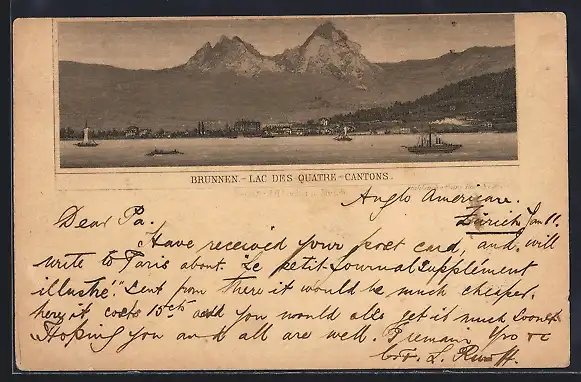 BRUNNEN.-LAC DES QUATRE-CANTONS.
Anglo Americare.
Zürich Jan 11.
Dear Pa.
Have received your post card, and will
write to Paris about. "Le petit Journal Supplément
illustré". Sent from there it would be much cheaper,
here it costs 15 cts and you would also get it much sooner.
Hoping you and all are well. I remain Yrs &c
L.